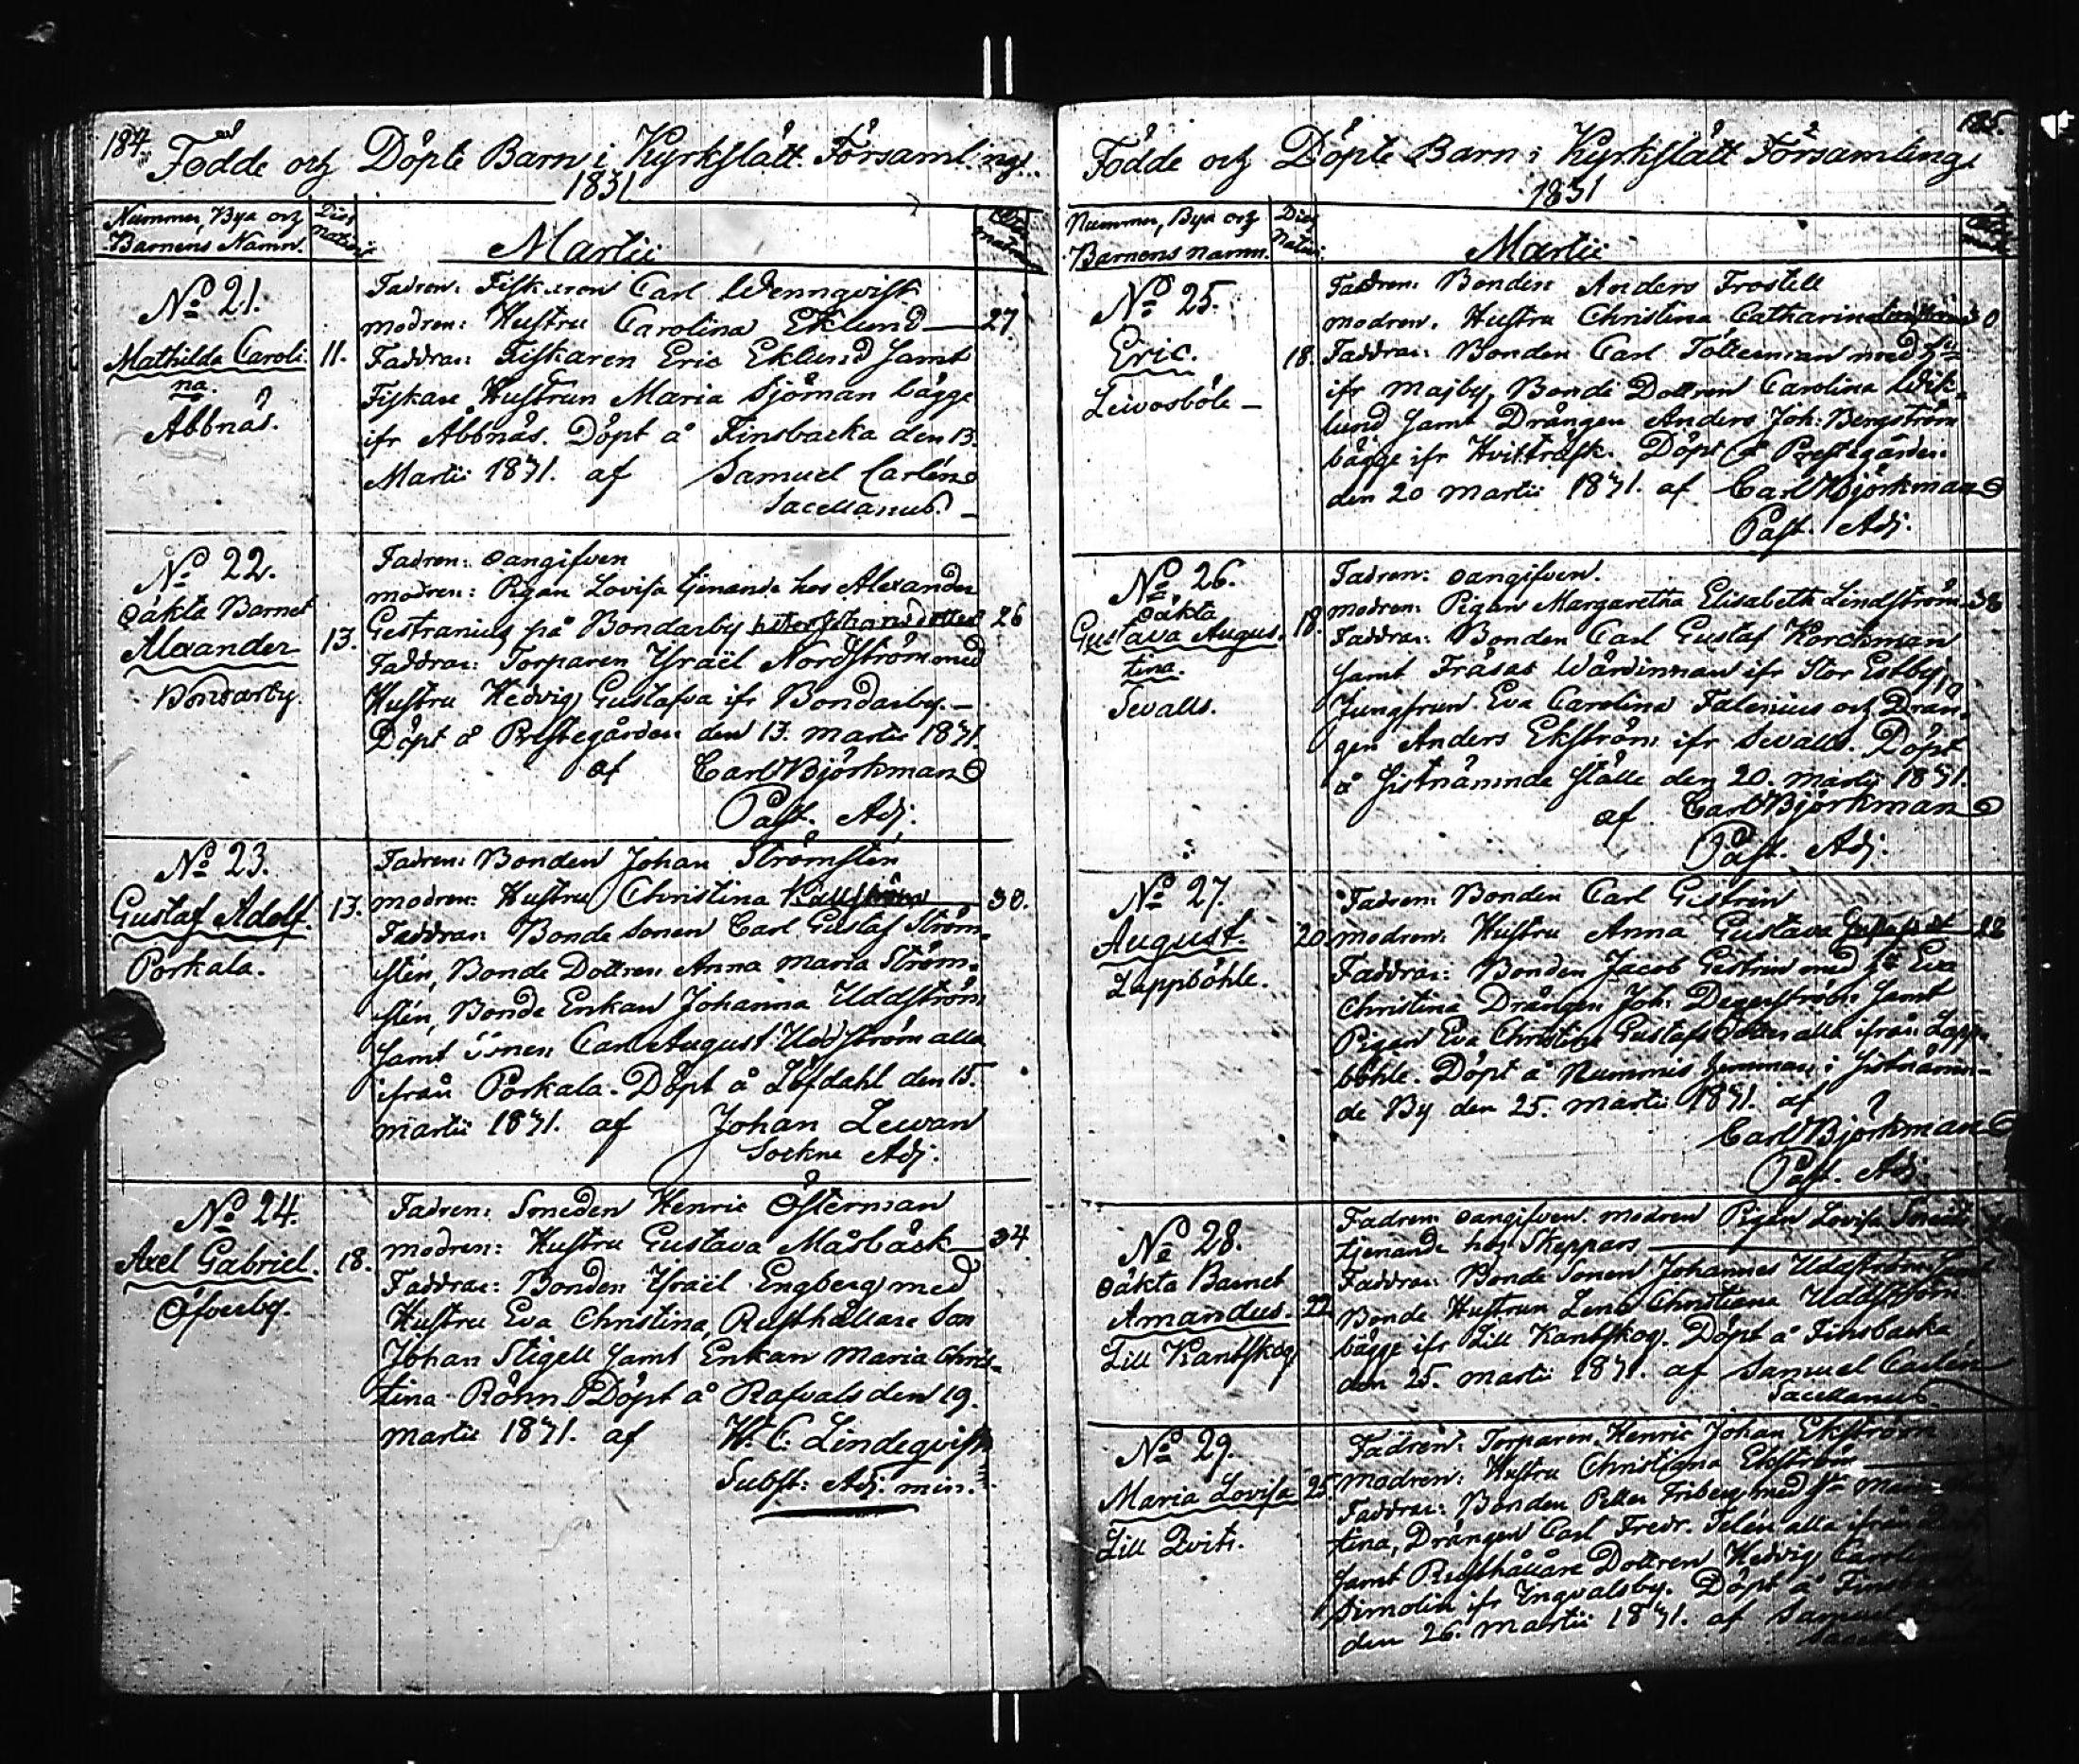 184.
Födde och Döpte Barn i Kyrkslätt Församling.
1831
Nummer, Bya och
Barnens Namn.
Dies
natiu:
Martii
Ætas
matrum
No 21.
Mathilda Caroli
na.
Åbbnäs.
11.
Fadren: Fiskaren Carl Wennqvist
modren: Hustru Carolina Eklund — 27.
Faddrar: Fiskaren Eric Eklund samt
Fiskare Hustrun Maria Sjöman bägge
ifr Åbbnäs. Döpt å Finsbacka den 13.
Martii 1831. af Samuel Carlén
Sacellanus.
No 22.
oäkta Barnet
Alexander
Bondarby.
13.
Fadren: oangifven
modren: Pigan Lovisa tjenande hos Alexander
Gestranius på Bondarby 26
Faddrar: Torparen Ysraël Nordström med
Hustru Hedvig Gustafva ifr Bondarby. —
Döpt å Prestegården den 13. martii 1831.
af Carl Björkman
Past. Adj.
No 23.
Gustaf Adolf.
Porkala.
13.
Fadren: Bonden Johan Strömsten
modren: Hustru Christina Källström 30.
Faddrar: Bonde Sonen Carl Gustaf Ström-
stén, Bonde Dottren Anna Maria Ström-
stén, Bonde Enkan Johanna Uddström
samt Sönen Carl August Uddström alla
ifrån Porkala. Döpt å Löfdahl den 15.
martii 1831. af Johan Lewan
Sockne Adj.
No 24.
Axel Gabriel.
Öfverby.
18.
Fadren: Smeden Henric Österman
modren: Hustru Gustava Måsbäck — 34
Faddrar: Bonden Ysraël Engberg med
Hustru Eva Christina, Rusthållare Son
Johan Stigell samt Enkan Maria Chris-
tina Rönn. Döpt å Rafvals den 19.
martii 1831. af H. C. Lindeqvist
Subst: Adj. min.
185.
Födde och Döpte Barn i Kyrkslätt Församling.
1831
Nummer, Bya och
Barnens namn.
Dies
Natiu:
Martii
No 25.
Eric.
Leivosböle —
18.
Fadren: Bonden Anders Frostell
modren. Hustru Christina Catharina 30
Faddrar: Bonden Carl Tötterman med Hu
ifr Majby, Bonde Dottren Carolina Wik-
lund samt Drängen Anders Joh: Bergström
bägge ifr Hvitträsk. Döpt å Prestegården
den 20 martii 1831. af Carl Björkman
Past. Adj.
No 26.
oäkta
Gustava Augus-
tina.
Sevalls.
18.
Fadren: oangifven.
modren: Pigan Margaretha Elisabeth Lindström 38
Faddrar: Bonden Carl Gustaf Korckman
samt Fräsas Wärdinnan ifr Stor Estby,
Jungfrun Eva Carolina Falenius och Drän-
gen Anders Ekström ifr Sevalls. Döpt
å sistnämnde ställe den 20. martii 1831.
af Carl Björkman
Past. Adj.
No 27.
August.
Lappböhle.
20.
Fadren: Bonden Carl Gestrin
modren: Hustru Anna Gustava
Faddrar: Bonden Jacob Gestrin med Hu Eva
Christina Drängen Joh: Degerström samt
Pigan Eva Christina Gustafs Dotter alla ifrån Lapp-
böhle. Döpt å Nummis hemman i sistnämn-
de By den 25. martii 1831. af
Carl Björkman
Past. Adj.
No 28.
oäkta Barnet
Amandus.
Lill Kantskog
22
Fadren: oangifven. modren Pigan Lovisa
tjenande hos Skeppars
Faddrar: Bonde Sonen Johannes Uddström samt
Bonde Hustrun Lena Christiana Uddström
bägge ifr Lill Kantskog. Döpt å Finsbacka
den 25. martii 1831. af Samuel Carlén
Sacellanus.
No 29.
Maria Lovisa
Lill Qvits.
25.
Fadren: Torparen Henric Johan Ekström
modren: Hustru Christiana Ekström
Faddrar: Bonden Petter Friberg med Hu Maria
tina, Drängen Carl Fredr. Telén alla ifrån
samt Rusthållare Dottren Hedvig Carolina
Simolin ifr Yngvalsby. Döpt å Finsbacka
den 26. martii 1831. af Samuel